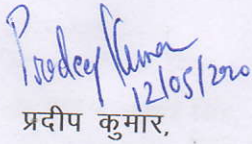 Pradeep Kumar
12/05/2020
प्रदीप कुमार,